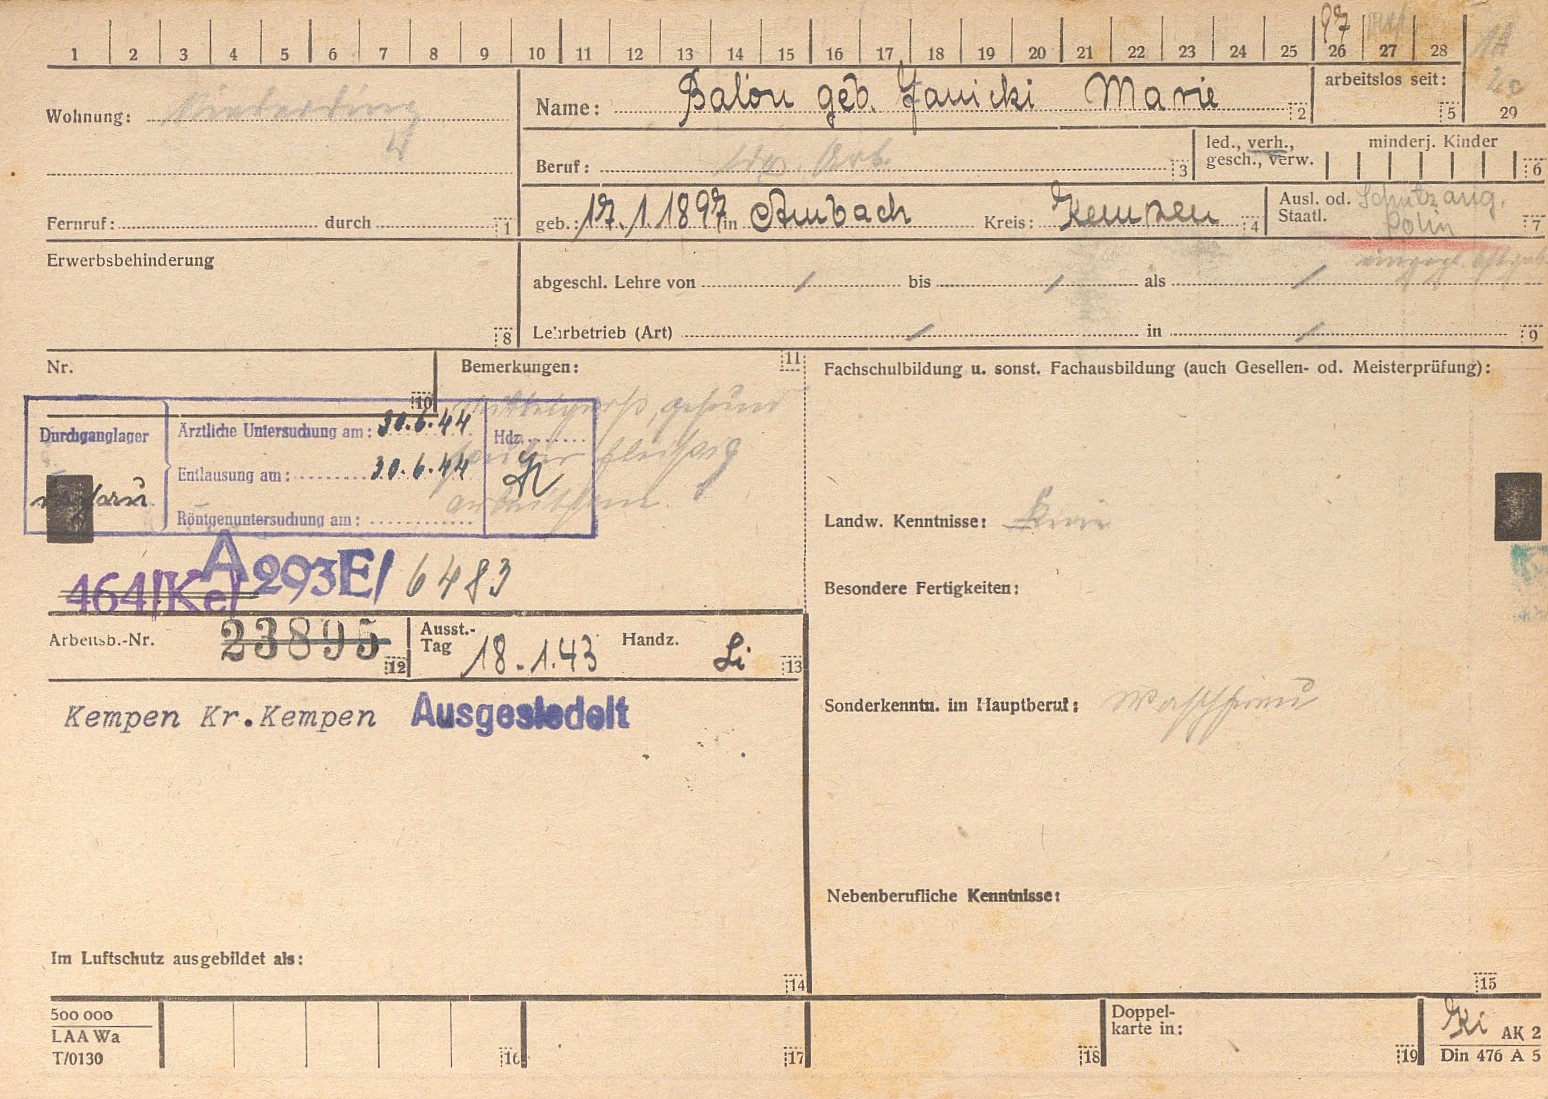 1 2 3 4 5 6 7 8 9 10 11 12 13 14 15 16 17 18 19 20 21 22 23 24 25 26 27 28
97
Wohnung:
Name: Balon geb. Janicki Marie 2
arbeitslos seit: 5
29
Beruf: ldw. Arb. 3
led., verh.,
gesch., verw.
minderj. Kinder
6
Fernruf: durch 1
geb.: 17.1.1897 in Ambach Kreis: Kempen 4
Ausl. od.
Staatl.
Schutzang.
Polin
7
Erwerbsbehinderung
8
abgeschl. Lehre von / bis / als /
Lehrbetrieb (Art) / in / 9
Nr.
10
Bemerkungen: 11
mittelgross, gesund
sauber fleissig
Durchganglager
Ärztliche Untersuchung am: 30.6.44
Entlausung am: 30.6.44
Röntgenuntersuchung am:
Hdz.
464/Ke/ A293E/ 6483
Arbeitsb.-Nr. 23895 12
Ausst.-
Tag 18.1.43
Handz. Li 13
Kempen Kr.Kempen Ausgesiedelt
Im Luftschutz ausgebildet als:
14
Fachschulbildung u. sonst. Fachausbildung (auch Gesellen- od. Meisterprüfung):
Landw. Kenntnisse: keine
Besondere Fertigkeiten:
Sonderkenntn. im Hauptberuf: Waschfrau
Nebenberufliche Kenntnisse:
15
500 000
LAA Wa
T/0130
16
17
18
Doppel-
karte in:
19
Ki AK 2
Din 476 A 5